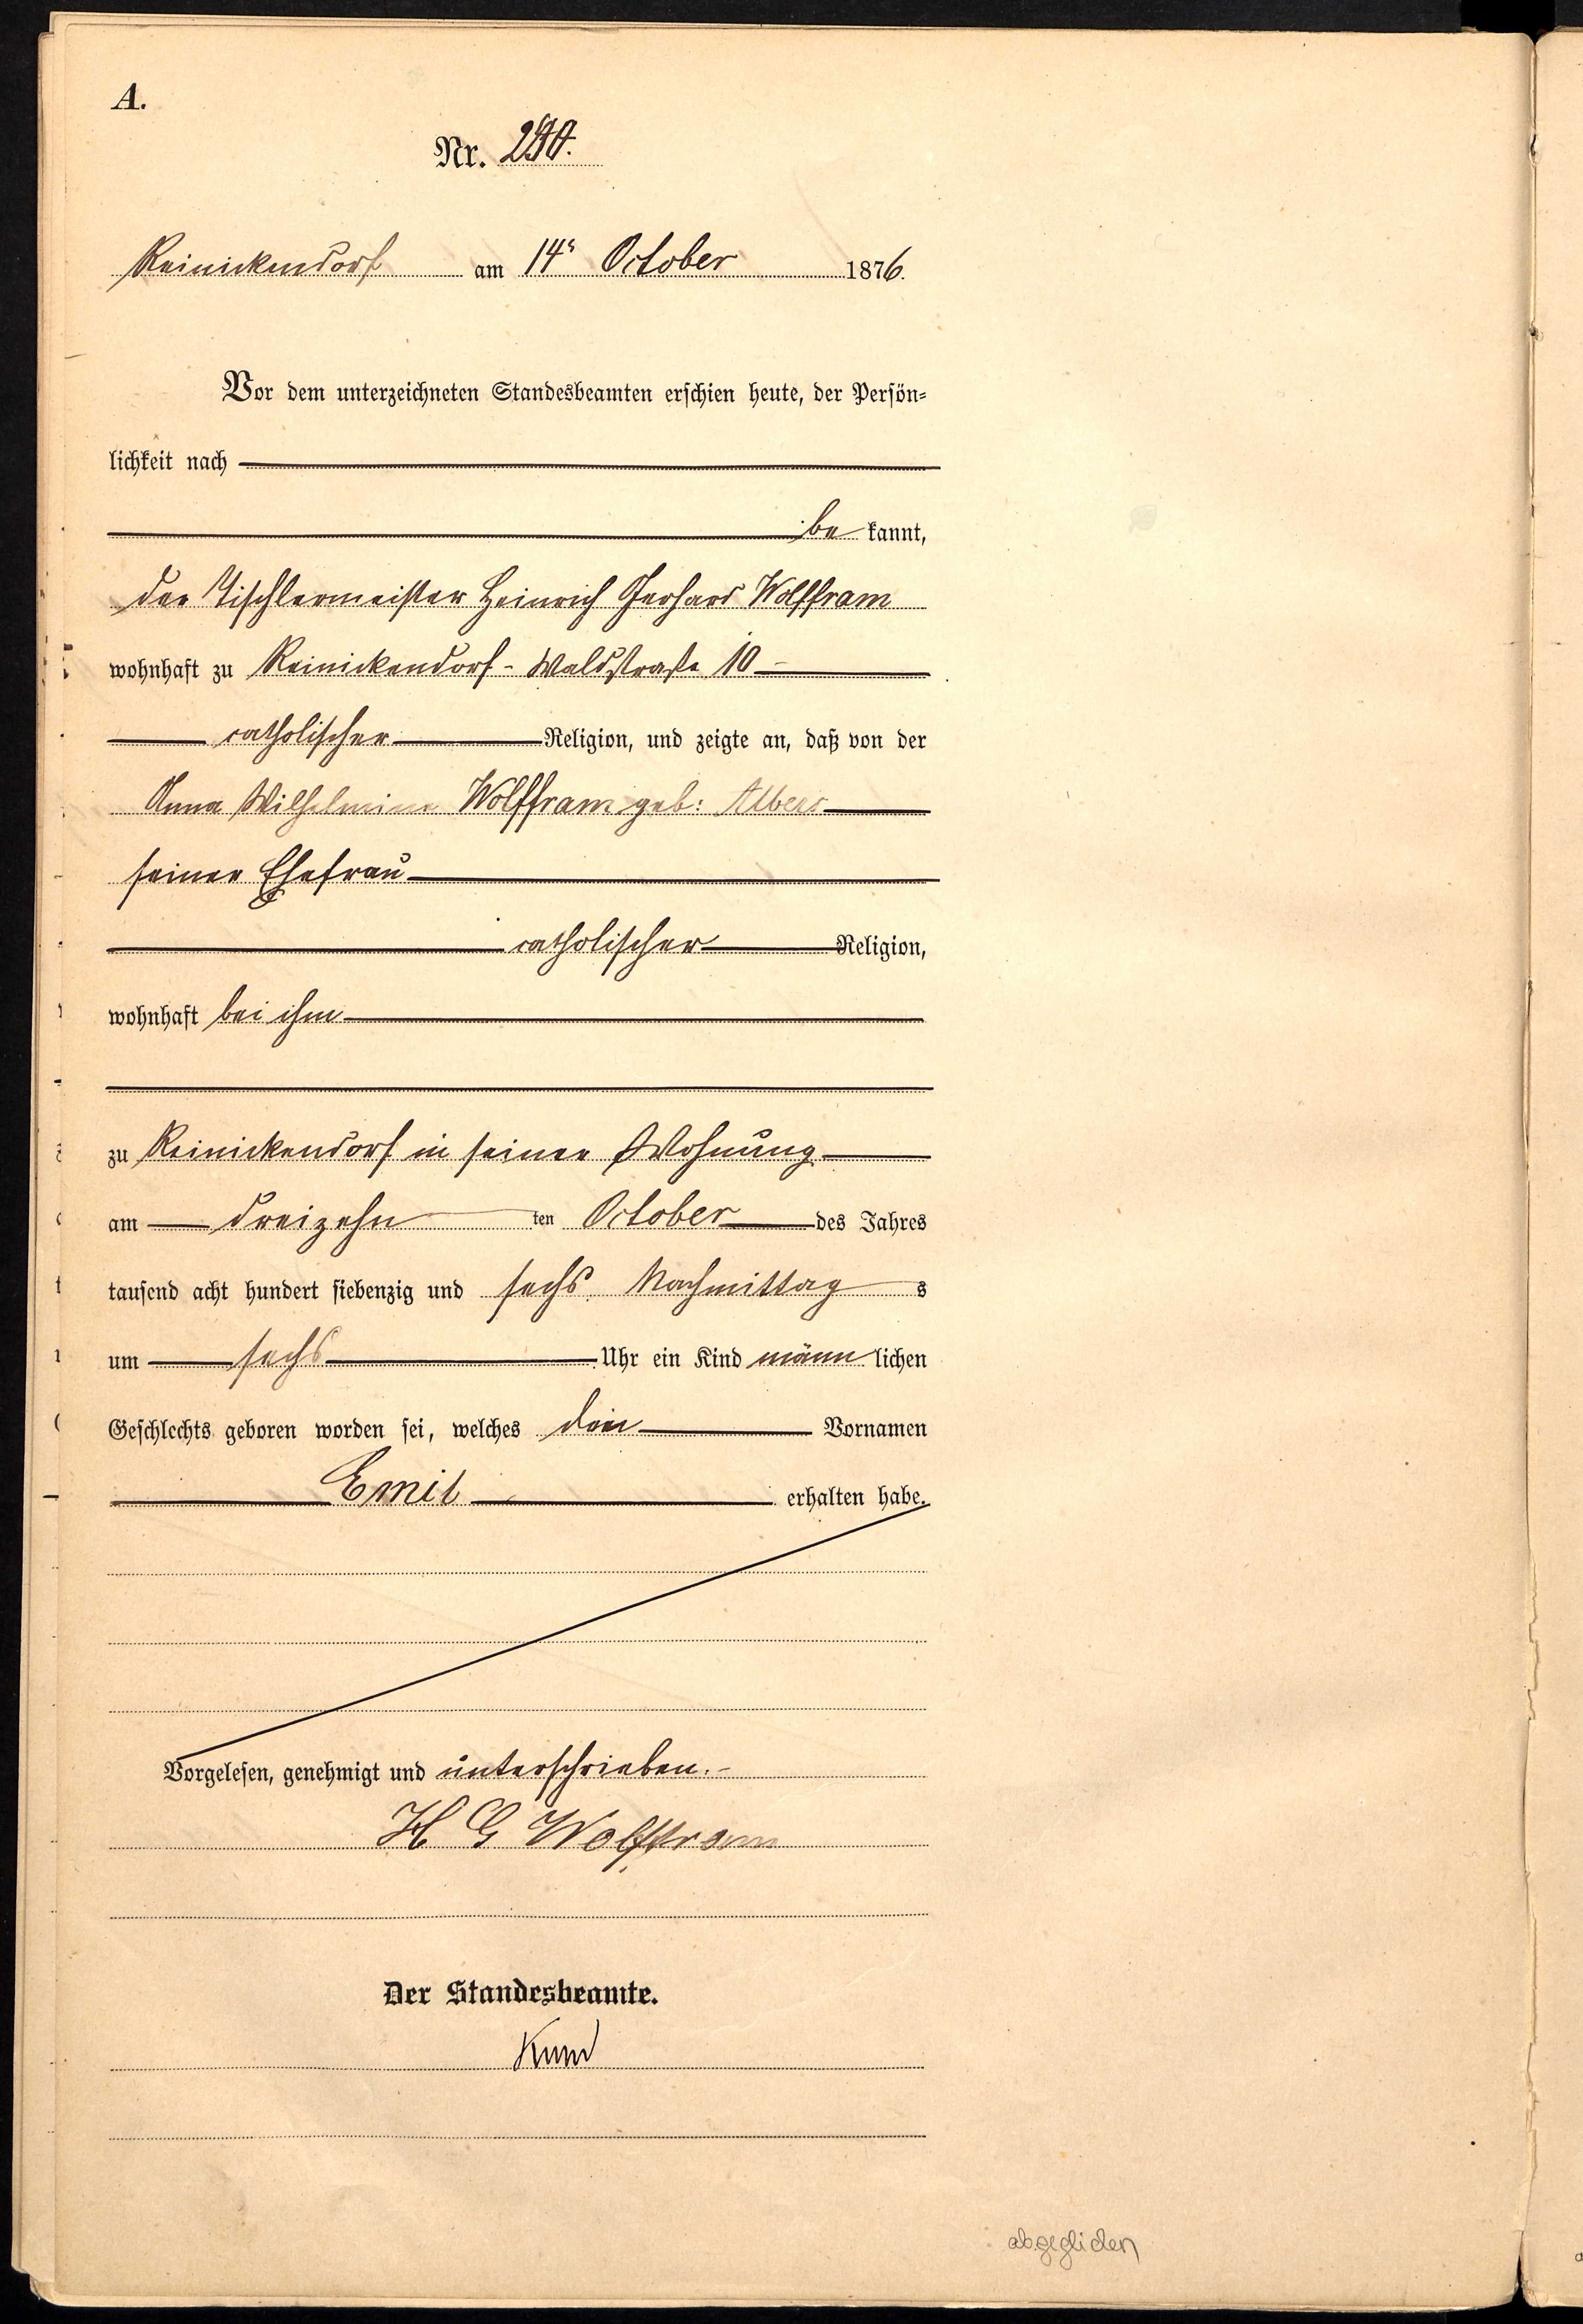 A.
Nr.
Reinickendorf am 14ᵗ October 1876.
Vor dem unterzeichneten Standesbeamten erschien heute, der Persön-
lichkeit nach
be kannt,
der Tischlermeister Heinrich Gerhard Wolffram
wohnhaft zu Reinickendorf - Waldstraße 10
catholischer Religion, und zeigte an, daß von der
Anna Wilhelmine Wolffram geb: Albers
seiner Ehefrau
catholischer Religion,
wohnhaft bei ihm
zu Reinickendorf in seiner Wohnung
am dreizehn ten October des Jahres
tausend acht hundert siebenzig und sechs Nachmittag s
um sechs Uhr ein Kind männ lichen
Geschlechts geboren worden sei, welches Vornamen
Emil erhalten habe.
Vorgelesen, genehmigt und unterschrieben.-
H G Wolffram
Der Standesbeamte.
abgegliden